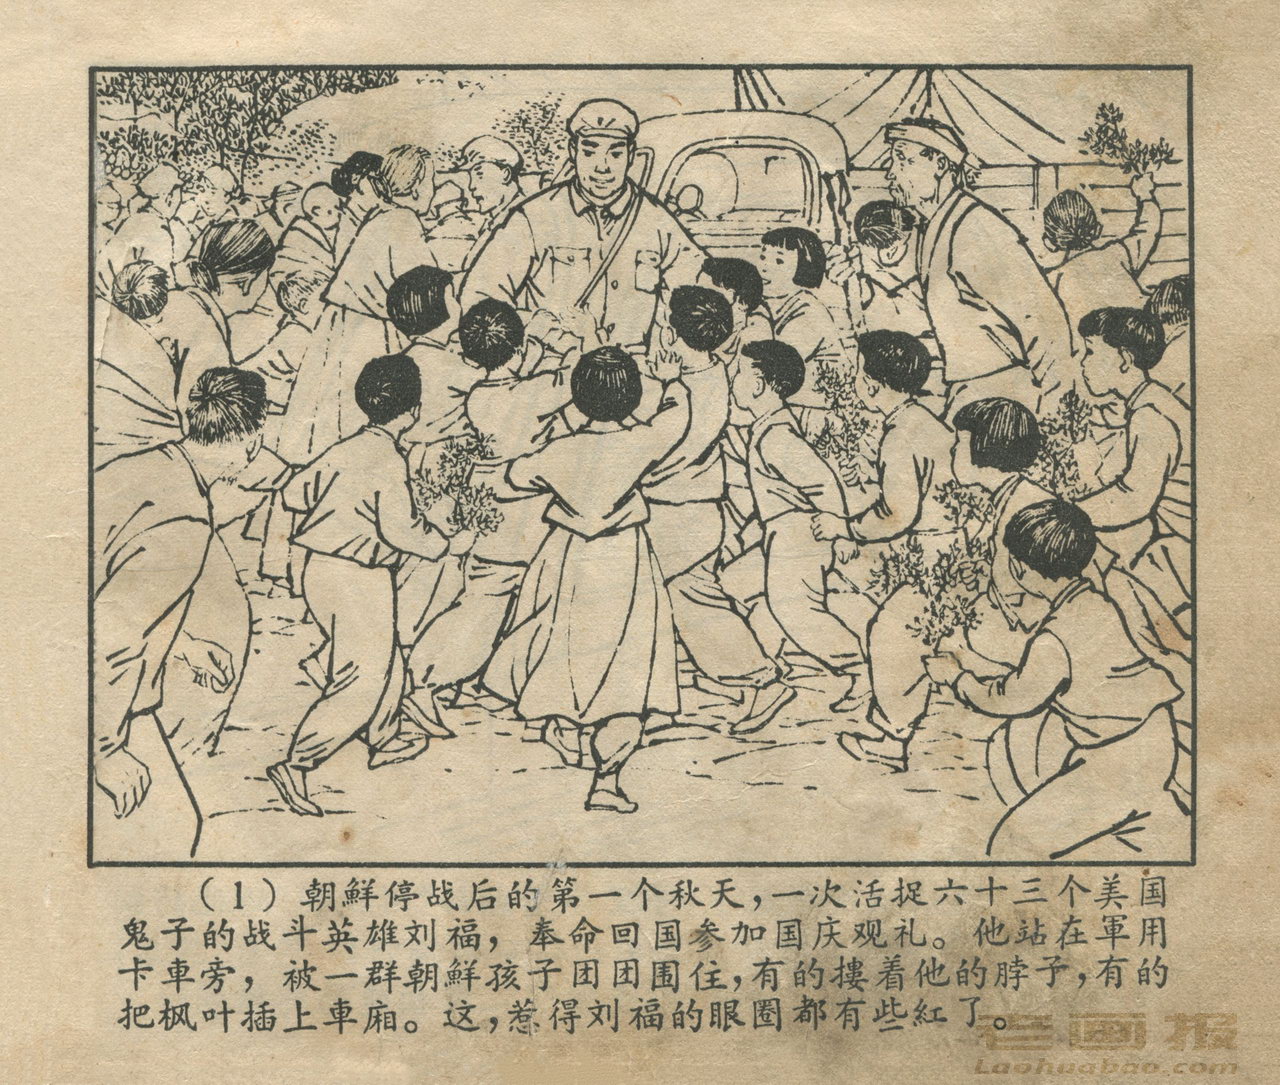 （1）朝鮮停战后的第一个秋天，一次活捉六十三个美国
鬼子的战斗英雄刘福，奉命回国参加国庆观礼。他站在軍用
卡車旁，被一群朝鮮孩子团团围住，有的搂着他的脖子，有的
把枫叶插上車厢。这，惹得刘福的眼圈都有些紅了。
老画报
Laohuabao.com